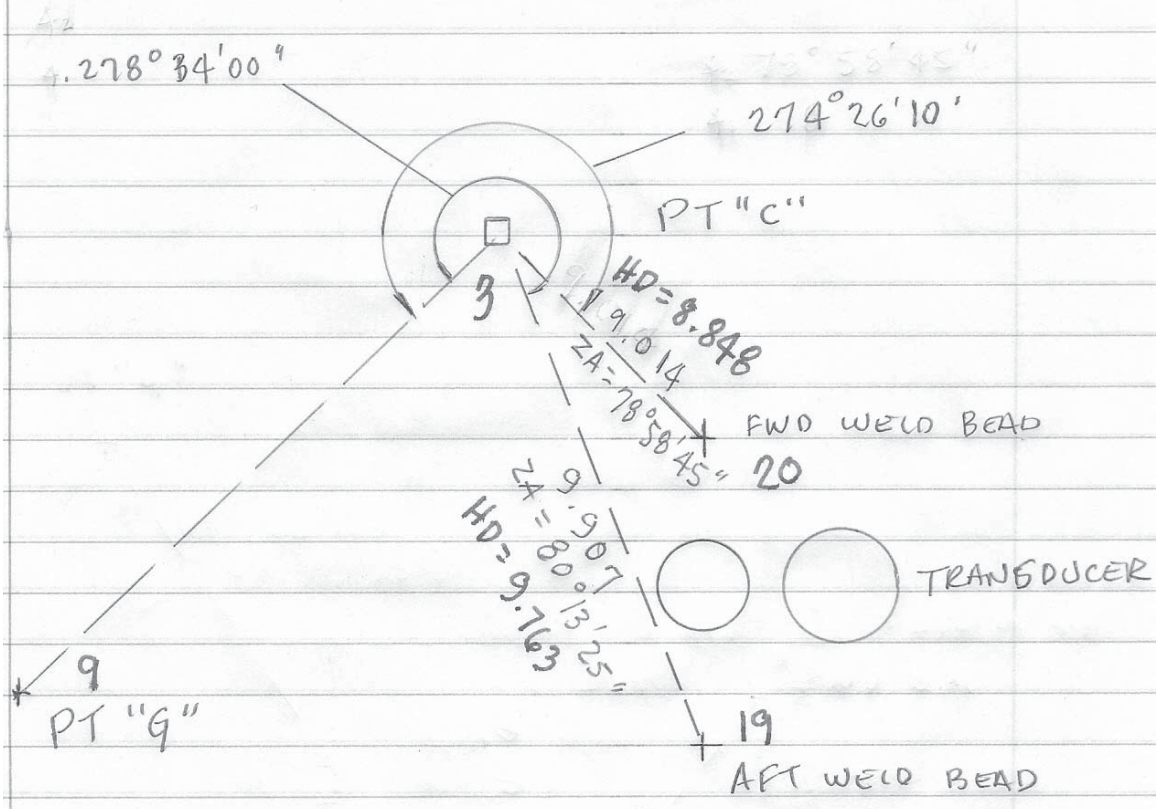 278°34'00"
73°58'45"
274°26'10'
PT "C"
3
HD=8.848
9.014
ZA=78°58'45"
FWD WELD BEAD
20
9.907
ZA=80°13'25"
HD=9.763
TRANSDUCER
9
PT "G"
19
AFT WELD BEAD